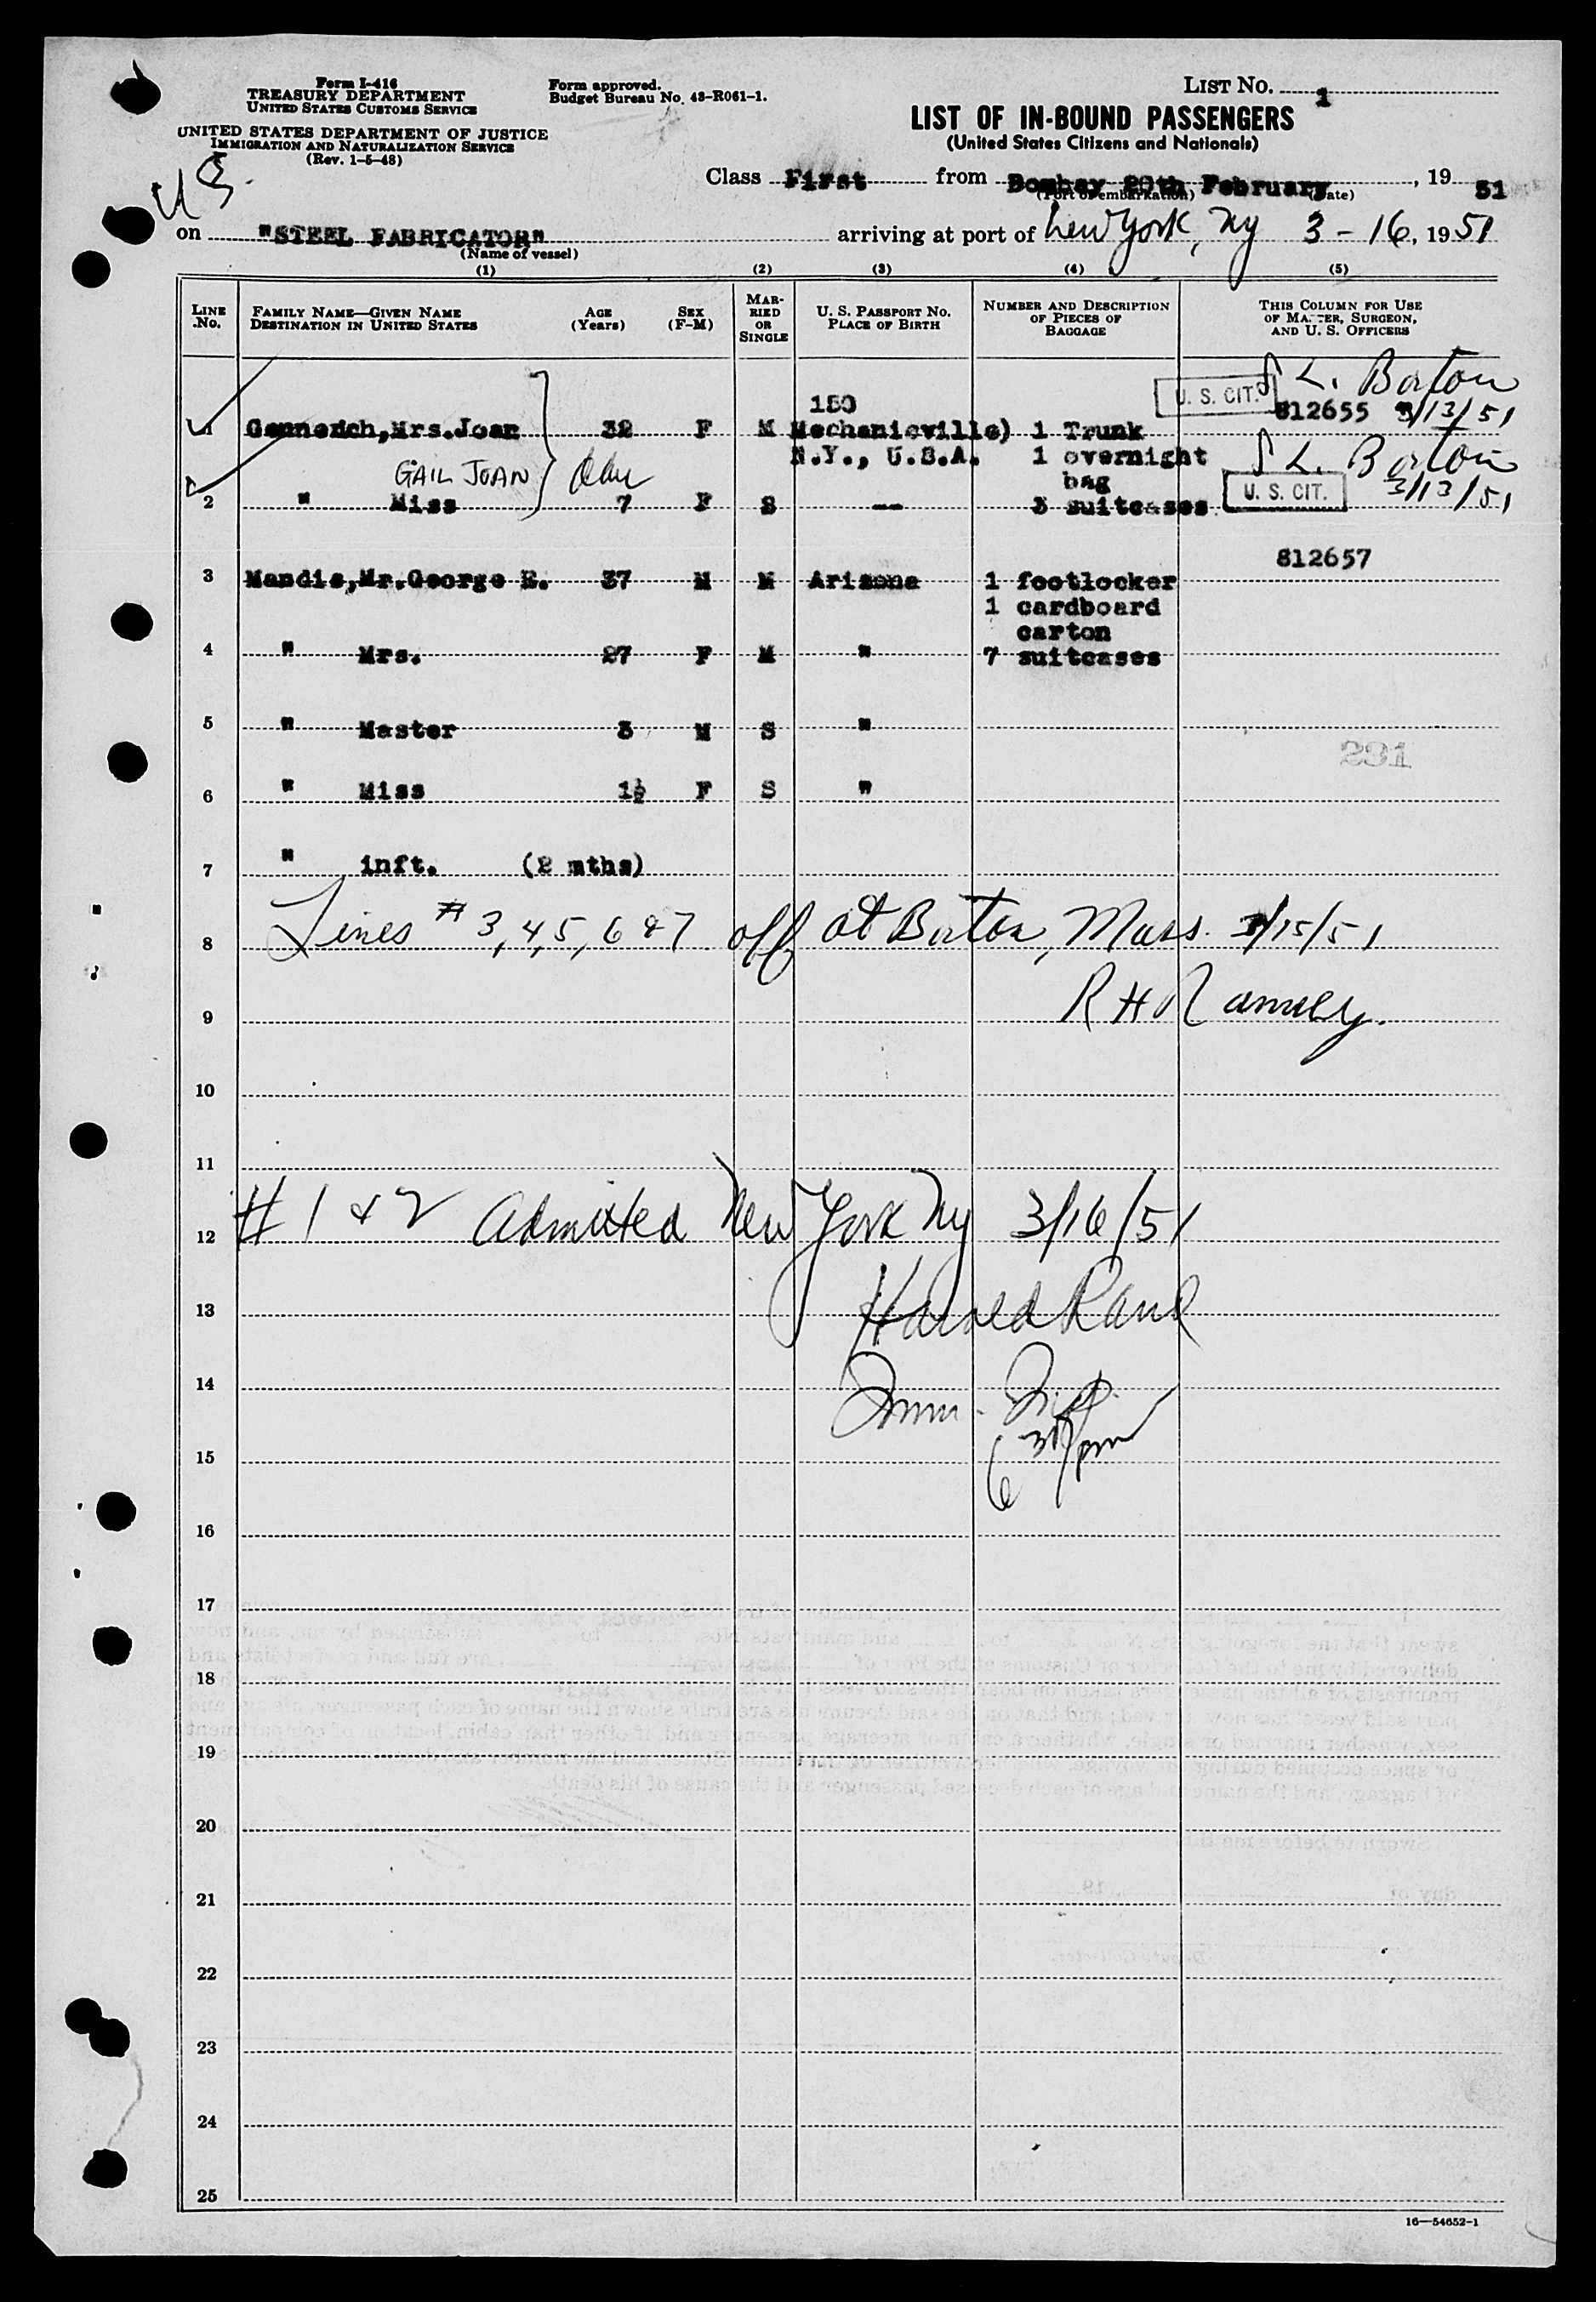 Form I-416
TREASURY DEPARTMENT
UNITED STATES CUSTOMS SERVICE
UNITED STATES DEPARTMENT OF JUSTICE
IMMIGRATION AND NATURALIZATION SERVICE
(Rev. 1-5-48)
Form approved.
Budget Bureau No. 43-R061-1.
LIST NO. 1
LIST OF IN-BOUND PASSENGERS
(United States Citizens and Nationals)
US.
Class First from Bombay 20th February, 19 51
(Port of embarkation) (Date)
on "STEEL FABRICATOR" arriving at port of New York, NY 3-16, 1951
(Name of vessel)
(1) (2) (3) (4) (5)
LINE No. FAMILY NAME—GIVEN NAME DESTINATION IN UNITED STATES AGE (Years) SEX (F-M) MARRIED OR SINGLE U. S. PASSPORT NO. PLACE OF BIRTH NUMBER AND DESCRIPTION OF PIECES OF BAGGAGE THIS COLUMN FOR USE OF MASTER, SURGEON, AND U. S. OFFICERS
U. S. CIT. S L. Borton
150 812655 3/13/51
1 Gennerich,Mrs.Joan 32 F M Mechanicville) 1 Trunk
N.Y., U.S.A. 1 overnight S L. Borton
GAIL JOAN bag U. S. CIT. 3/13/51
2 " Miss 7 F S -- 3 suitcases
812657
3 Mandis,Mr.George E. 37 M M Arizona 1 footlocker
1 cardboard
carton
4 " Mrs. 27 F M " 7 suitcases
5 " Master 3 M S "
231
6 " Miss 1½ F S "
7 " inft. (2 mths)
8 Lines # 3,4,5,6 & 7 off at Boston, Mass. 3/15/51
9 R H Ramsey.
10
11
12 # 1 & 2 Admitted New York NY 3/16/51
13 Harold Rand
14 Imm. Insp.
15 6 30 pm
16
17
18
19
20
21
22
23
24
25
16—54652-1